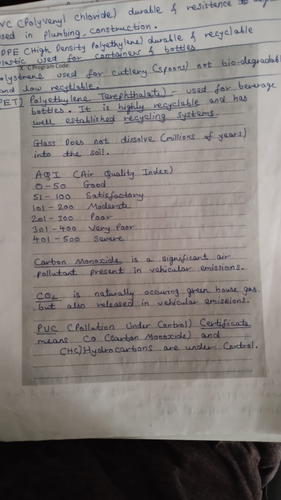 VC (Polyvenyl chloride) durable & resistence to
sed in plumbing, construction.
DPE (High Density Polyethylene) durable & recyclable
lastic used for containers & bottles
X. C Program Code
olystrene used for cutlery (spoons) not bio-degradab
and low recyclable.
PET) Polyethylene Terephthalate) - used for beverage
bottles. It is highly recyclable and has
well established recycling systems.
Glass Does not dissolve (millions of years)
into the soil.
AQI (Air Quality Index)
0-50 Good
51-100 Satisfactory
101-200 Moderate
201-300 Poor
301-400 Very Poor
401-500 Severe
Carbon Monoxide is a significant air
pollutant present in vehicular emissions.
CO2 is naturally occuring green house gas
but also released in vehicular emissions.
PUC (Pollution Under Control) Certificate
means CO (Carbon Monoxide) and
(HC) Hydrocarbons are under Control.